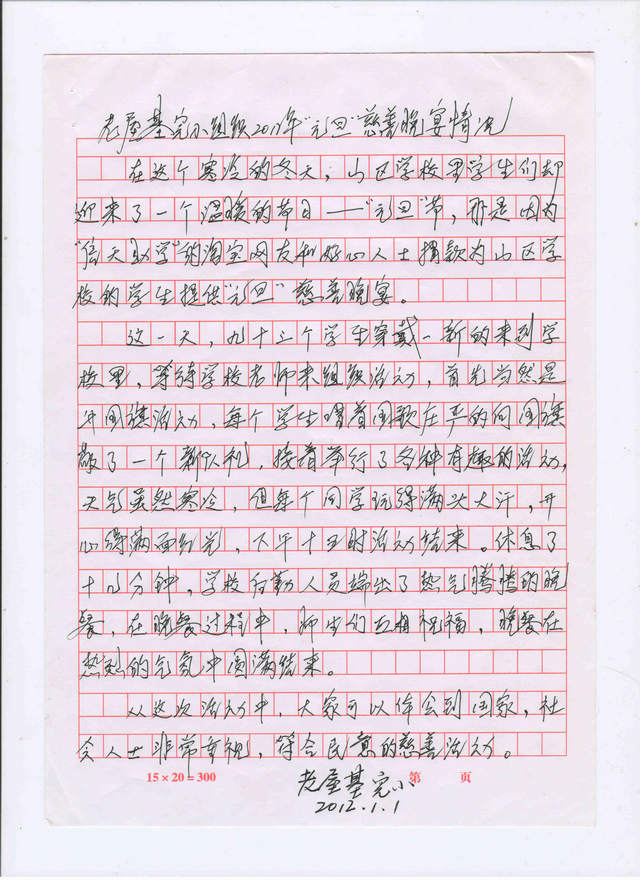 老屋基完小组织2011年"元旦"慈善晚宴情况
在这个寒冷的冬天，山区学校里学生们却
迎来了一个温暖的节日——"元旦"节，那是因为
"信天助学"的淘宝网友和好心人士捐款为山区学
校的学生提供"元旦"慈善晚宴。
这一天，九十三个学生穿戴一新的来到学
校里，等待学校老师来组织活动，首先当然是
升国旗活动，每个学生唱着国歌庄严的向国旗
敬了一个新队礼，接着举行了各种有趣的活动，
天气虽然寒冷，但每个同学玩得满头大汗，开
心得满面红光，下午十五时活动结束。休息了
十几分钟，学校后勤人员端出了热气腾腾的晚
餐，在晚餐过程中，师生们互相祝福，晚餐在
热烈的气氛中圆满结束。
从这次活动中，大家可以体会到国家，社
会人士非常重视，符合民意的慈善活动。
15×20=300
第 页
老屋基完小
2012.1.1